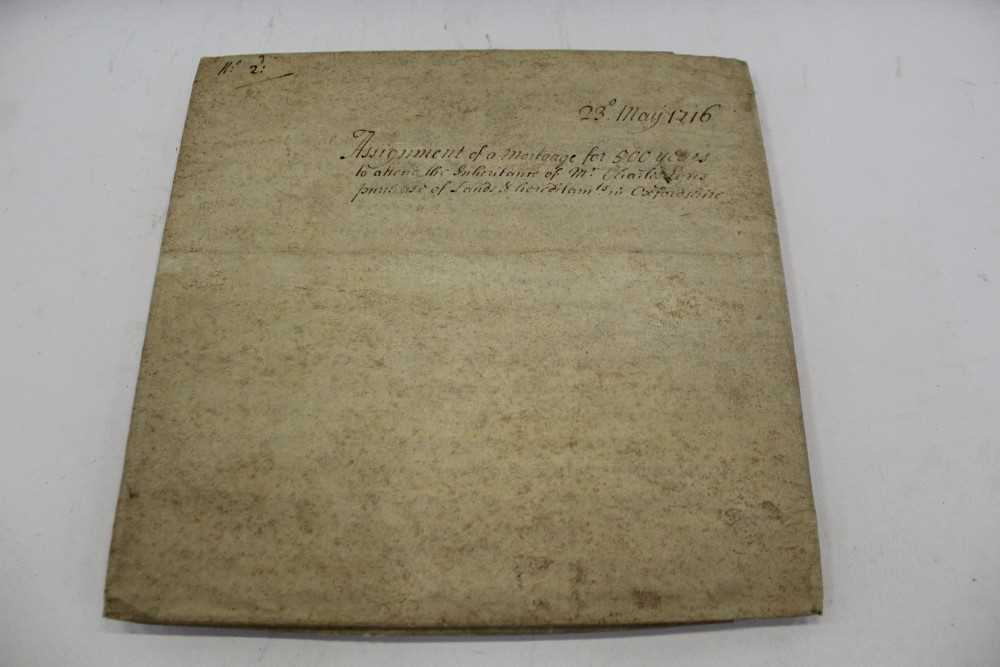 N.º 2d:
23.º May 1716
Assignment of a Mortgage for 500 years
to attend the Inheritance of Mr Charles
purchase of Lands & hereditamts in Oxfordshire